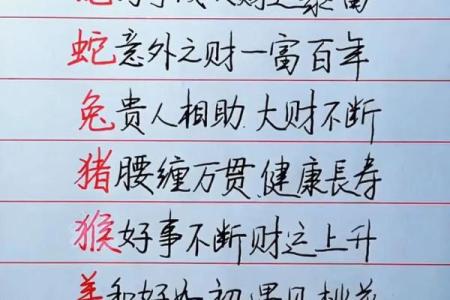 蛇意外之财一富百年
兔贵人相助大财不断
猪腰缠万贯健康長寿
猴好事不断财运上升
羊和好如初遇见桃花